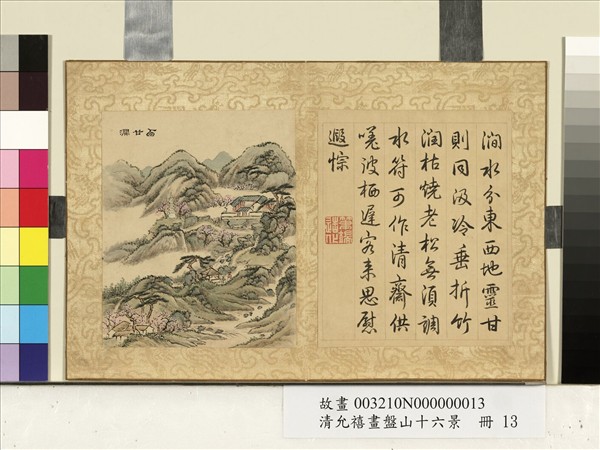 西甘澗
澗水分東西地靈甘
則同汲冷垂折竹
潤枯澆老松無須調
水符可作清齋供
嗟彼栖遲客來思慰
遐悰
故畫 003210N000000013
清允禧畫盤山十六景 冊 13